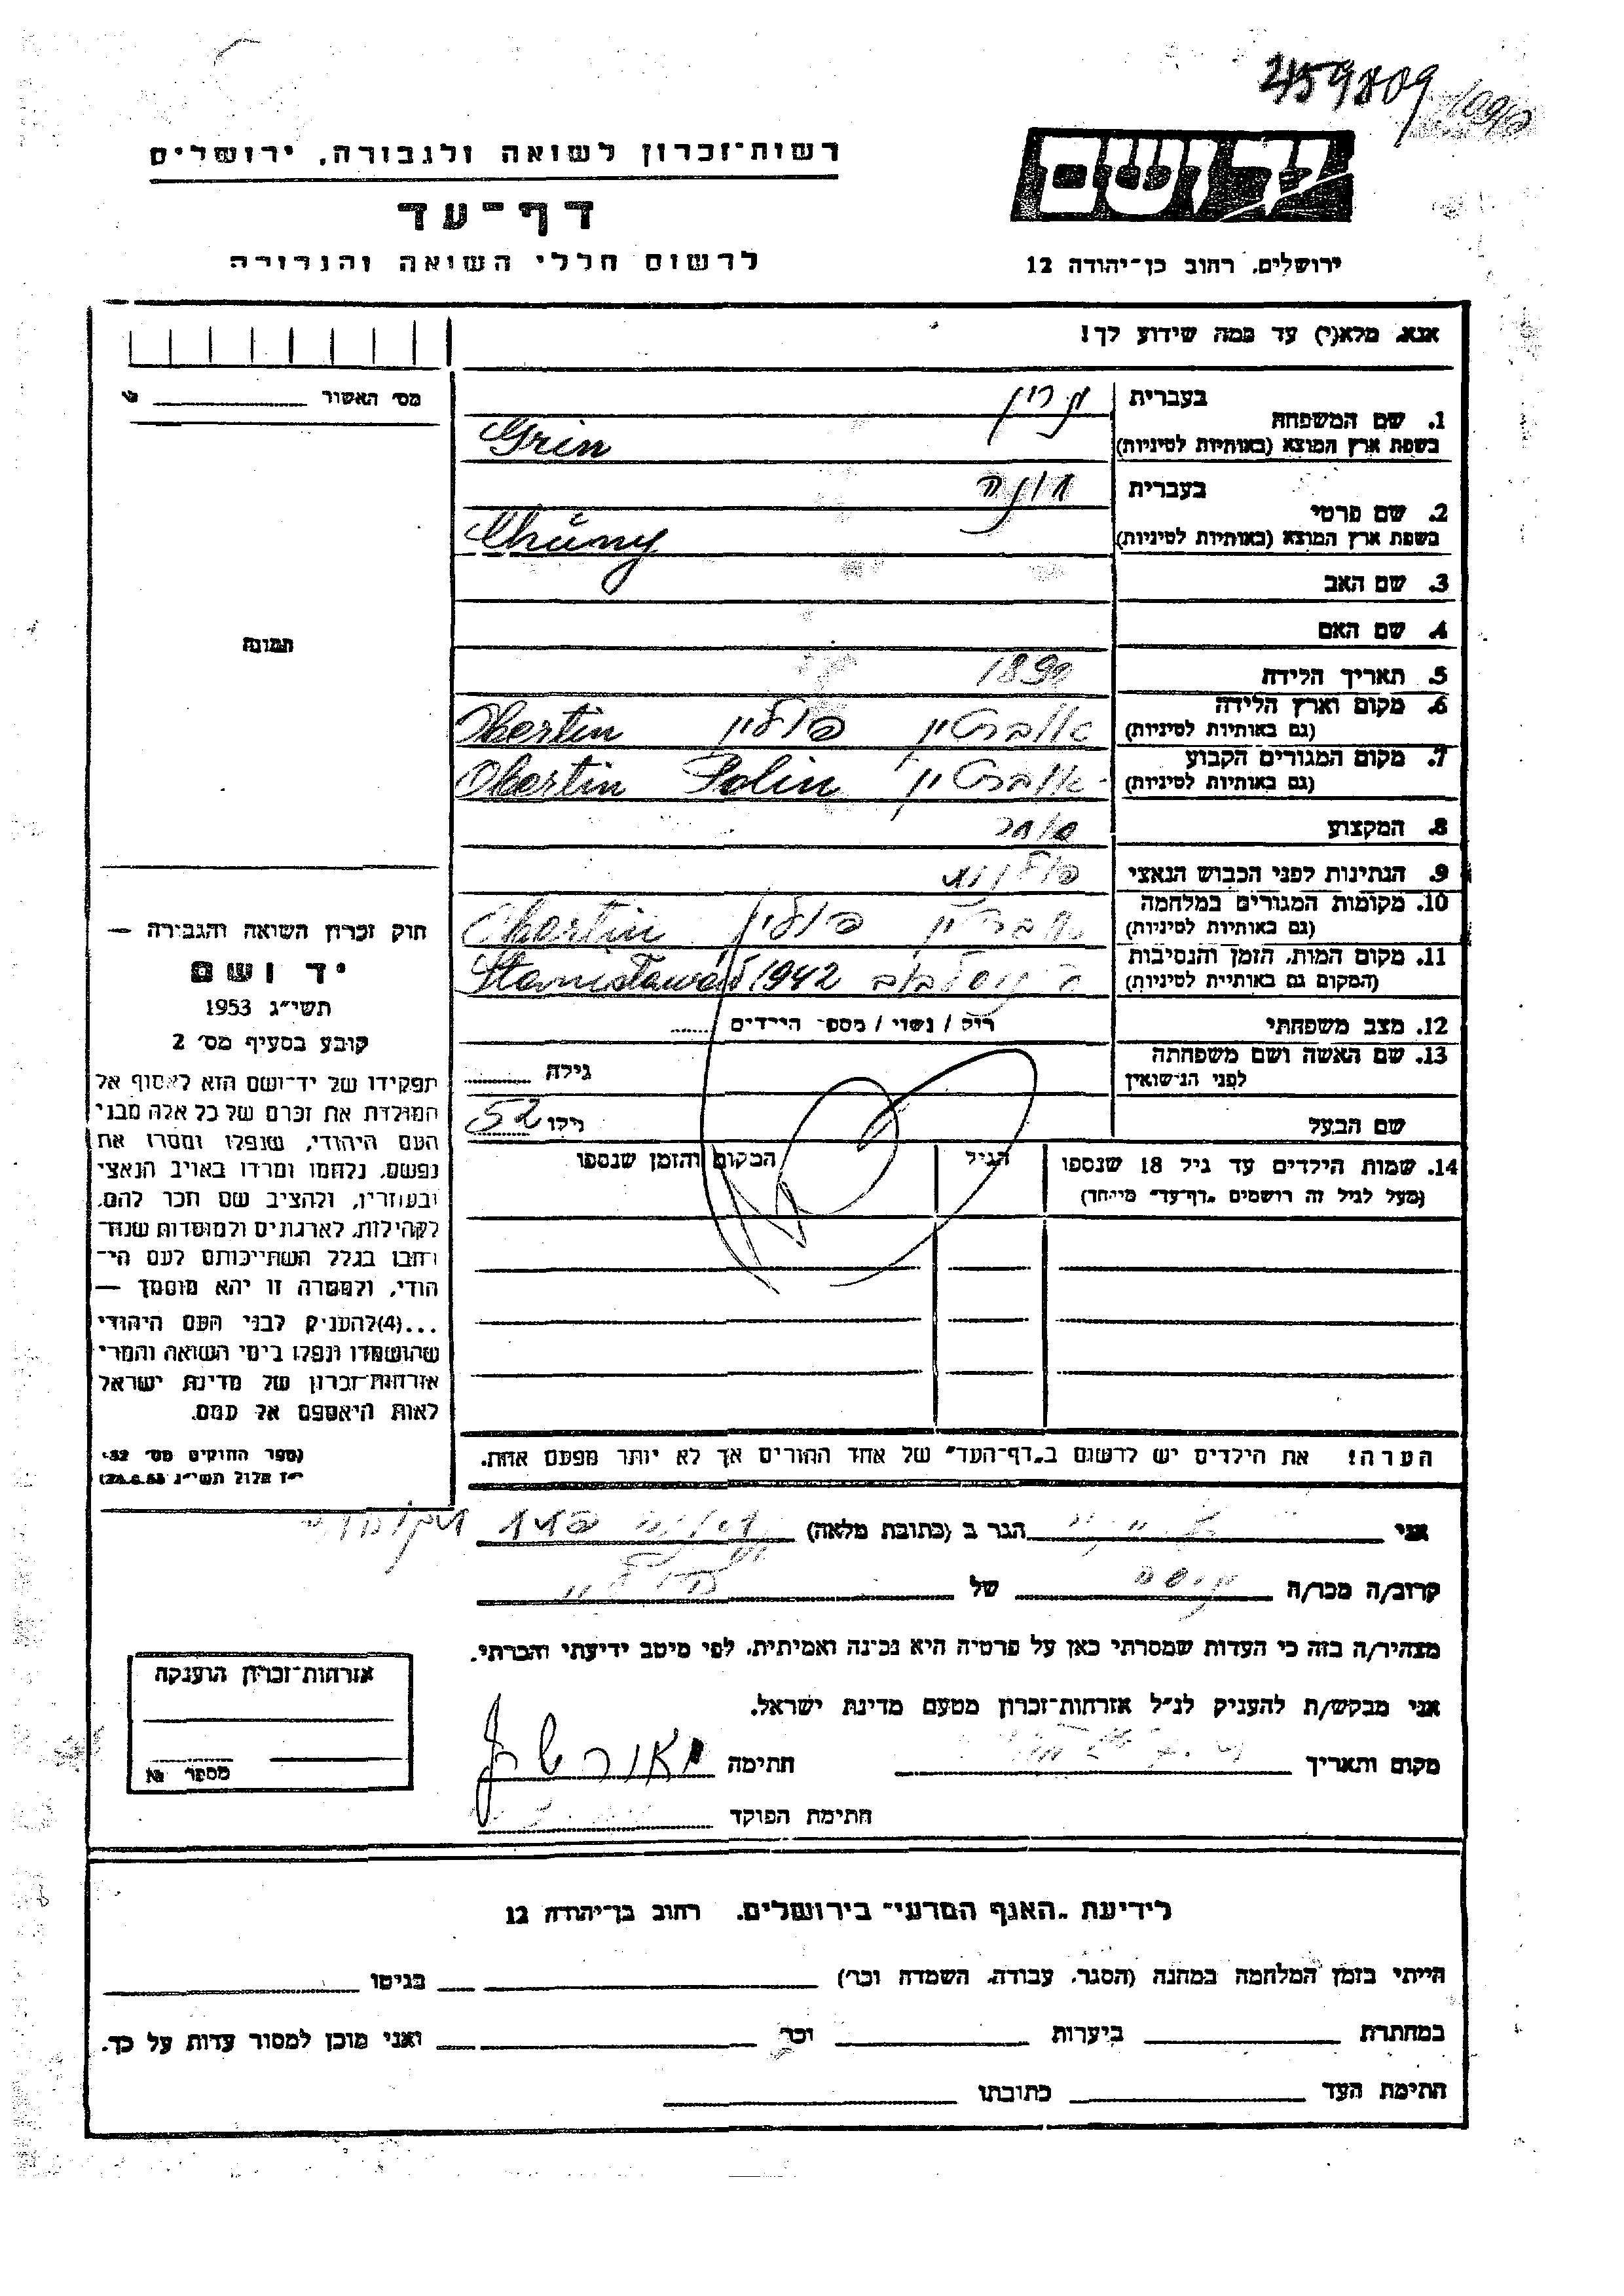 459809
רשות־זכרון לשואה ולגבורה, ירושלים
יד ושם
דף־עד
לרשום חללי השואה והגבורה
ירושלים, רחוב בן־יהודה 12
אנא, מלא(י) עד כמה שידוע לך!
מס׳ האשור
1. שם המשפחה
בעברית גרין
בשפת ארץ המוצא (באותיות לטיניות) Grin
2. שם פרטי
בעברית חונה
בשפת ארץ המוצא (באותיות לטיניות) Chůny
3. שם האב
4. שם האם
5. תאריך הלידה 1890
6. מקום וארץ הלידה
(גם באותיות לטיניות) אוברטין פולין Obertin
7. מקום המגורים הקבוע
(גם באותיות לטיניות) אוברטין Polin Obertin
8. המקצוע סוחר
9. הנתינות לפני הכבוש הנאצי
10. מקומות המגורים במלחמה
(גם באותיות לטיניות) אוברטין פולין Obertin
11. מקום המות, הזמן והנסיבות
(המקום גם באותיות לטיניות) Stanisławów 1942
12. מצב משפחתי רוק / נשוי / מספר הילדים
13. שם האשה ושם משפחתה
לפני הנישואין גילה
שם הבעל גילו 52
14. שמות הילדים עד גיל 18 שנספו הגיל המקום והזמן שנספו
(מעל לגיל זה רושמים „דף־עד״ מיוחד)
הערה! את הילדים יש לרשום ב„דף־העד״ של אחד ההורים אך לא יותר מפעם אחת.
תמונה
חוק זכרון השואה והגבורה —
יד ושם
תשי״ג 1953
קובע בסעיף מס׳ 2
תפקידו של יד־ושם הוא לאסוף אל
המולדת את זכרם של כל אלה מבני
העם היהודי, שנפלו ומסרו את
נפשם, נלחמו ומרדו באויב הנאצי
ובעוזריו, ולהציב שם וזכר להם,
לקהילות, לארגונים ולמוסדות שנח־
רבו בגלל השתייכותם לעם הי־
הודי, ולמטרה זו יהא מוסמך —
...(4)להעניק לבני העם היהודי
שהושמדו ונפלו בימי השואה והמרי
אזרחות־זכרון של מדינת ישראל
לאות היאספם אל עמם.
(ספר החוקים מס׳ 132,
י״ז אלול תשי״ג 28.8.53)
אני הגר ב (כתובת מלאה)
קרוב/ה מכר/ה של
מצהיר/ה בזה כי העדות שמסרתי כאן על פרטיה היא נכונה ואמיתית, לפי מיטב ידיעתי והכרתי.
אני מבקש/ת להעניק לנ״ל אזרחות־זכרון מטעם מדינת ישראל.
מקום ותאריך חתימה
חתימת הפוקד
אזרחות־זכרון הוענקה
מספר №
לידיעת „האגף המדעי״ בירושלים, רחוב בן־יהודה 12
הייתי בזמן המלחמה במחנה (הסגר, עבודה, השמדה וכו׳) בגיטו
במחתרת ביערות וכו׳ ואני מוכן למסור עדות על כך.
חתימת העד כתובתו